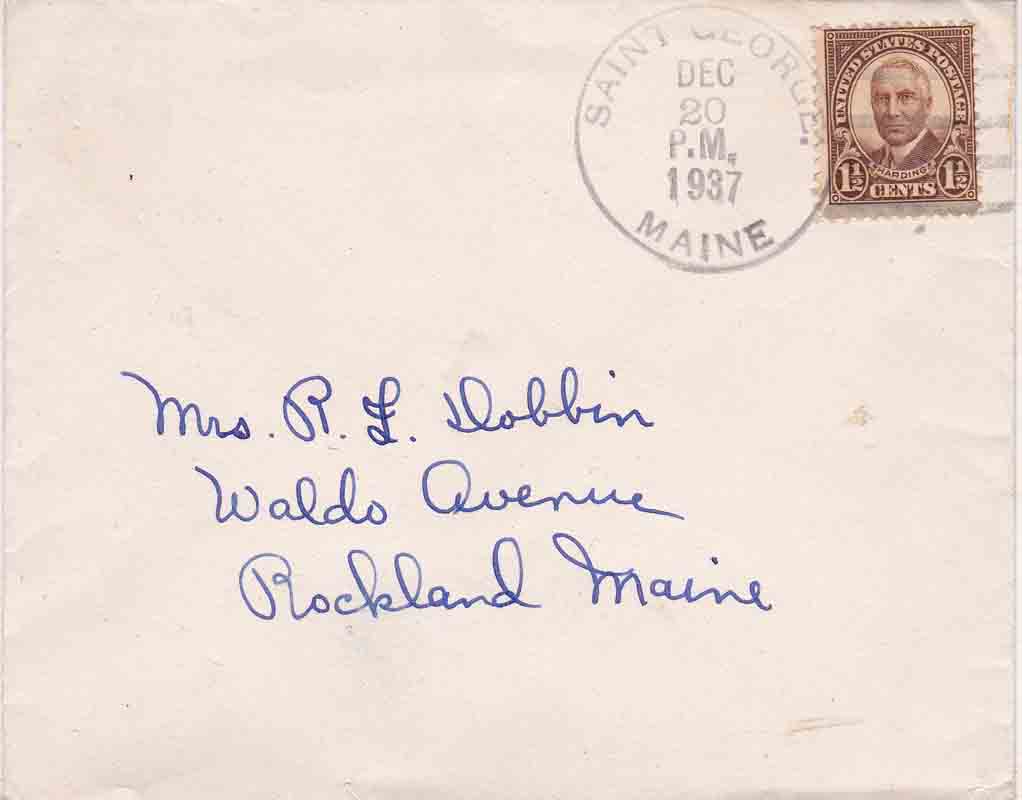 SAINT GEORGE.
DEC
20
P.M.
1937
MAINE
UNITED STATES POSTAGE
HARDING
1½ CENTS 1½
Mrs. R. L. Dobbin
Waldo Avenue
Rockland Maine